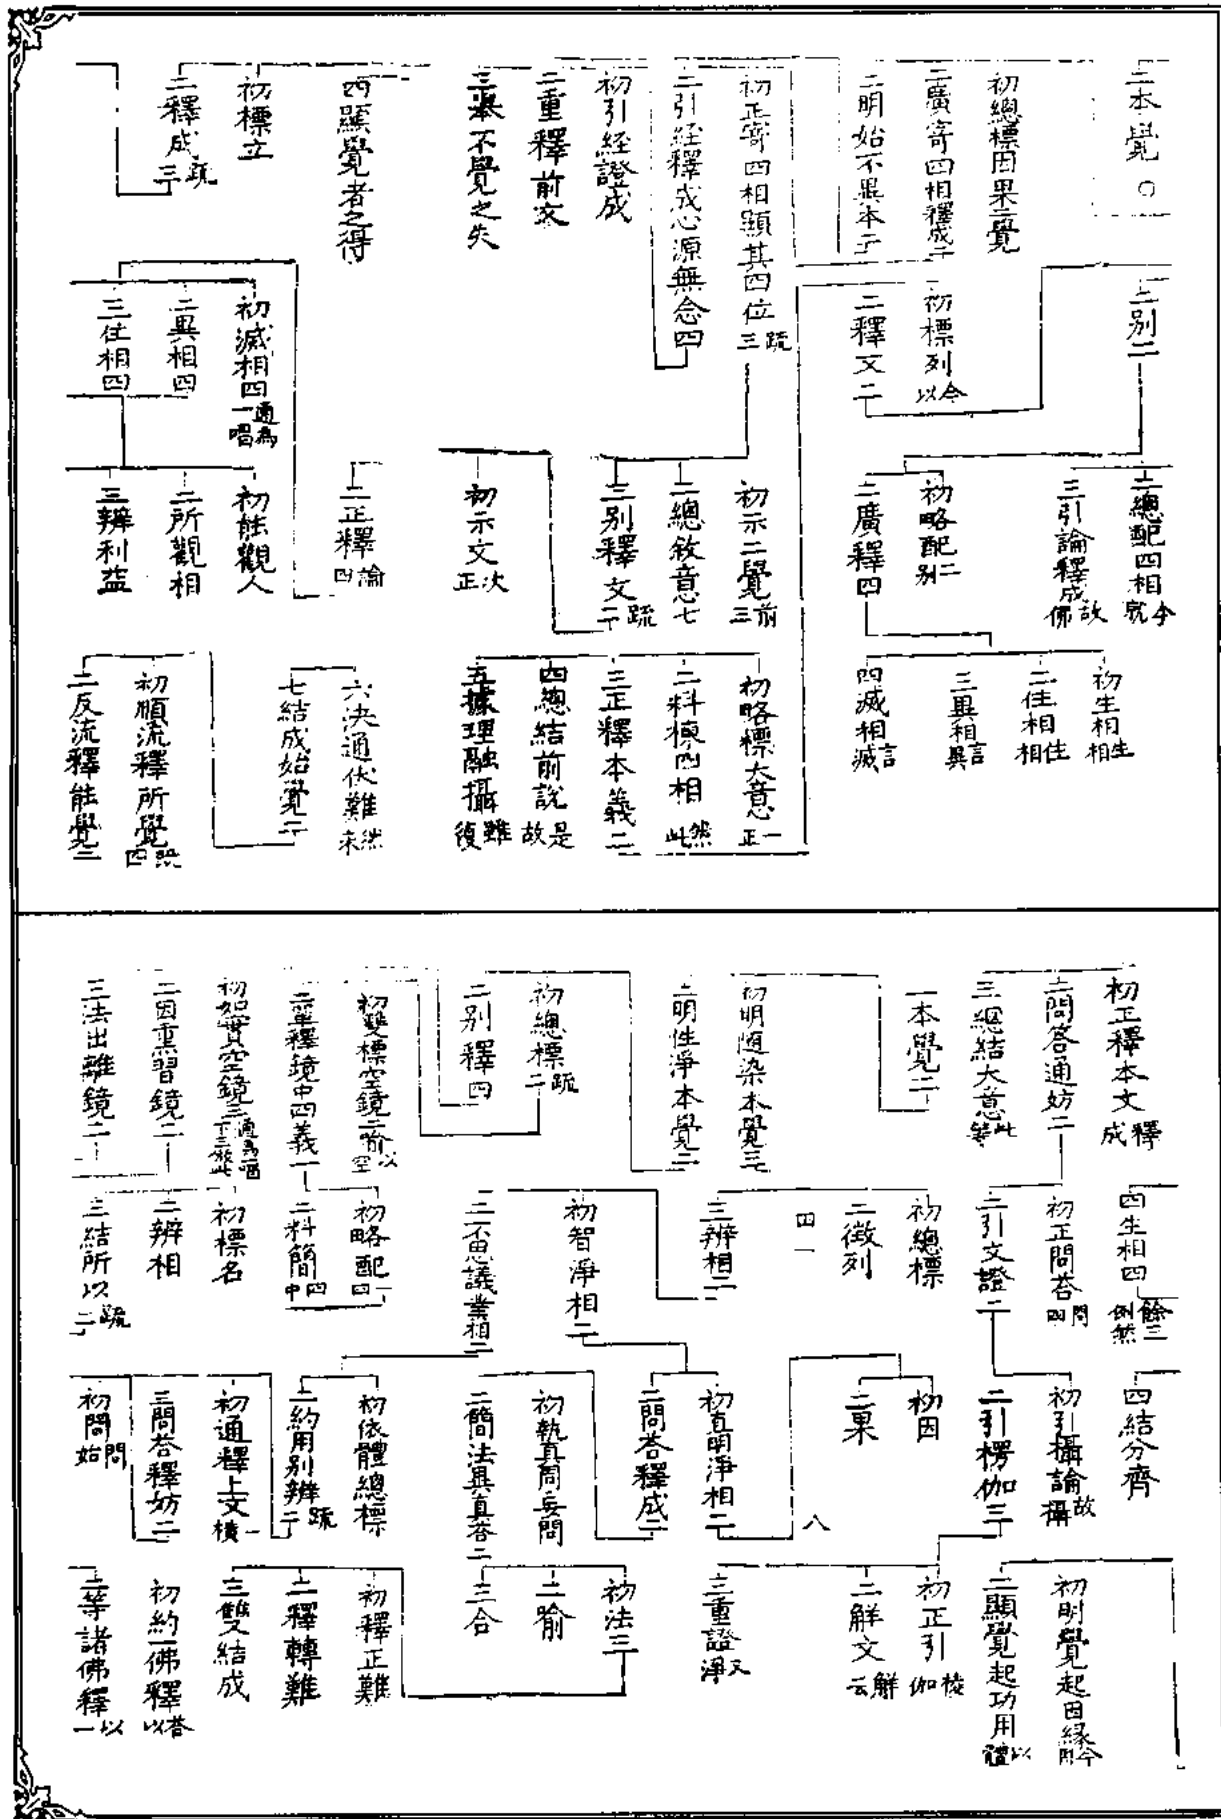 二本覺 ○
初總標因果二覺
二廣寄四相釋成二
二明始不異本二
初正寄四相顯其四位 疏三
二引経釋成心源無念四
初引経證成
二重釋前文
三舉不覺之失
四顯覺者之得
初標立
二釋成 疏三
二别二
初標列 今以
二釋文二
初滅相四 通為一唱
二異相四
三住相四
二總配四相 今就
三引論釋成 故佛
初略配 二别
二廣釋四
初示二覺 前三
二總敘意七
三别釋文 疏二
初示文 次正
二正釋 論四
初能觀人
二所觀相
三辨利益
初生相 生相
二住相 住相
三異相 言異
四滅相 言滅
初略標大意 一正
二料揀四相 然此
三正釋本義二
四總結前說 是故
五據理融攝 雖復
六決通伏難 然未
七結成始覺二
初順流釋所覺 疏四
二反流釋能覺二
初正釋本文 釋成
二問答通妨二
三總結大意 此等
一本覺二
初明随染本覺三
二明性淨本覺二
初總標 疏二
二别釋四
初雙標空鏡二喻 以空
二重釋鏡中四義一
初如實空鏡三 通為一唱下三倣此
二因熏習鏡二
三法出離鏡二
四生相四 餘三例然
初正問荅 問四
二引文證二
初總標
二徵列
三辨相二
四一
初智淨相二
二不思議業相二
初略配 一四
二料簡 四中
初標名
二辨相
三結所以 疏二
四結分齊
初引攝論 故攝
二引楞伽三
初因
二果
初直明淨相二
二問荅釋成二
初執真同妄問
二簡法異真荅二
初依體總標
二約用别辨 疏二
初通釋上文 一橫
三問荅釋妨二
初問 問始
初明覺起因緣 今用
二顯覺起功用 以體
初正引 棱伽
二解文 解云
三重證 又淨
八
初法三
二喻
三合
初釋正難
二釋轉難
三雙結成
初約一佛釋 荅以
二等諸佛釋 以一